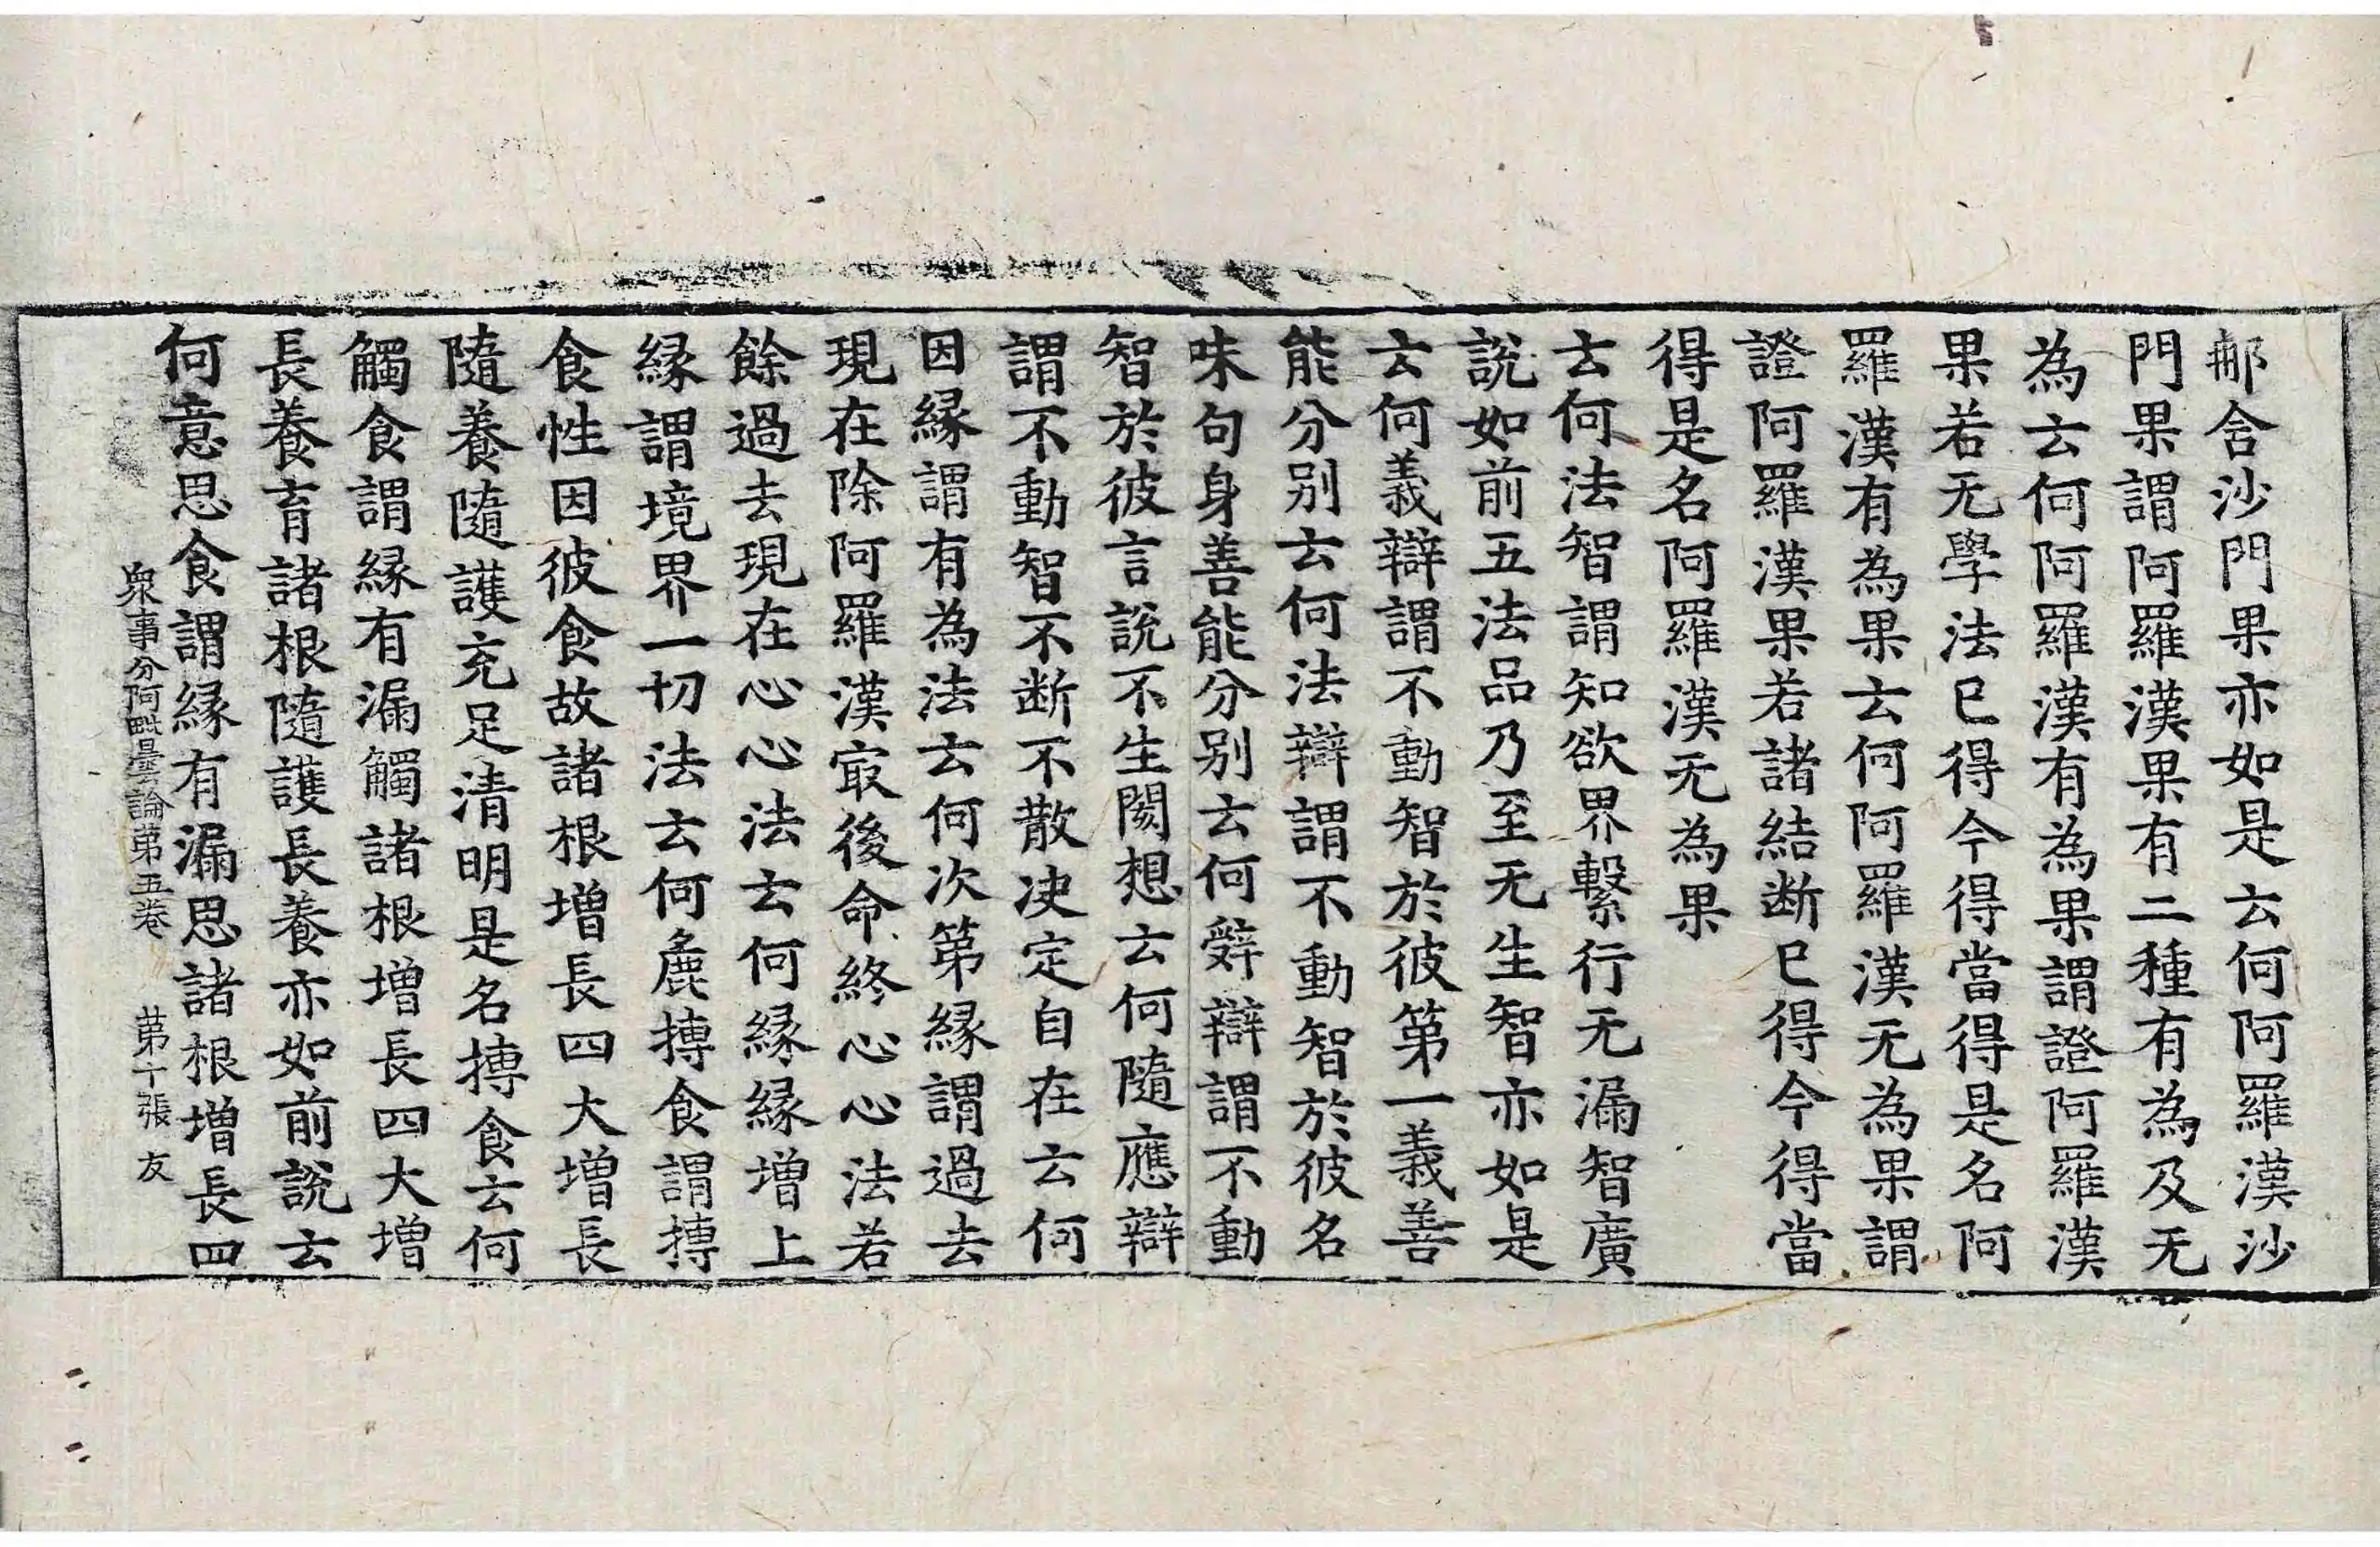 郍含沙門果亦如是云何阿羅漢沙
門果謂阿羅漢果有二種有為及无
為云何阿羅漢有為果謂證阿羅漢
果若无學法已得今得當得是名阿
羅漢有為果云何阿羅漢无為果謂
證阿羅漢果若諸結断已得今得當
得是名阿羅漢无為果
云何法智謂知欲界繫行无漏智廣
說如前五法品乃至无生智亦如是
云何義辯謂不動智於彼第一義善
能分别云何法辯謂不動智於彼名
味句身善能分别云何辤辯謂不動
智於彼言說不生閡想云何隨應辯
謂不動智不断不散决定自在云何
因縁謂有為法云何次第縁謂過去
現在除阿羅漢㝡後命終心心法若
餘過去現在心心法云何縁縁增上
縁謂境界一切法云何麁摶食謂摶
食性因彼食故諸根增長四大增長
隨養隨護充足清明是名摶食云何
觸食謂縁有漏觸諸根增長四大增
長養育諸根隨護長養亦如前說云
何意思食謂縁有漏思諸根增長四
衆事分阿毗曇論第五卷 第十張 友